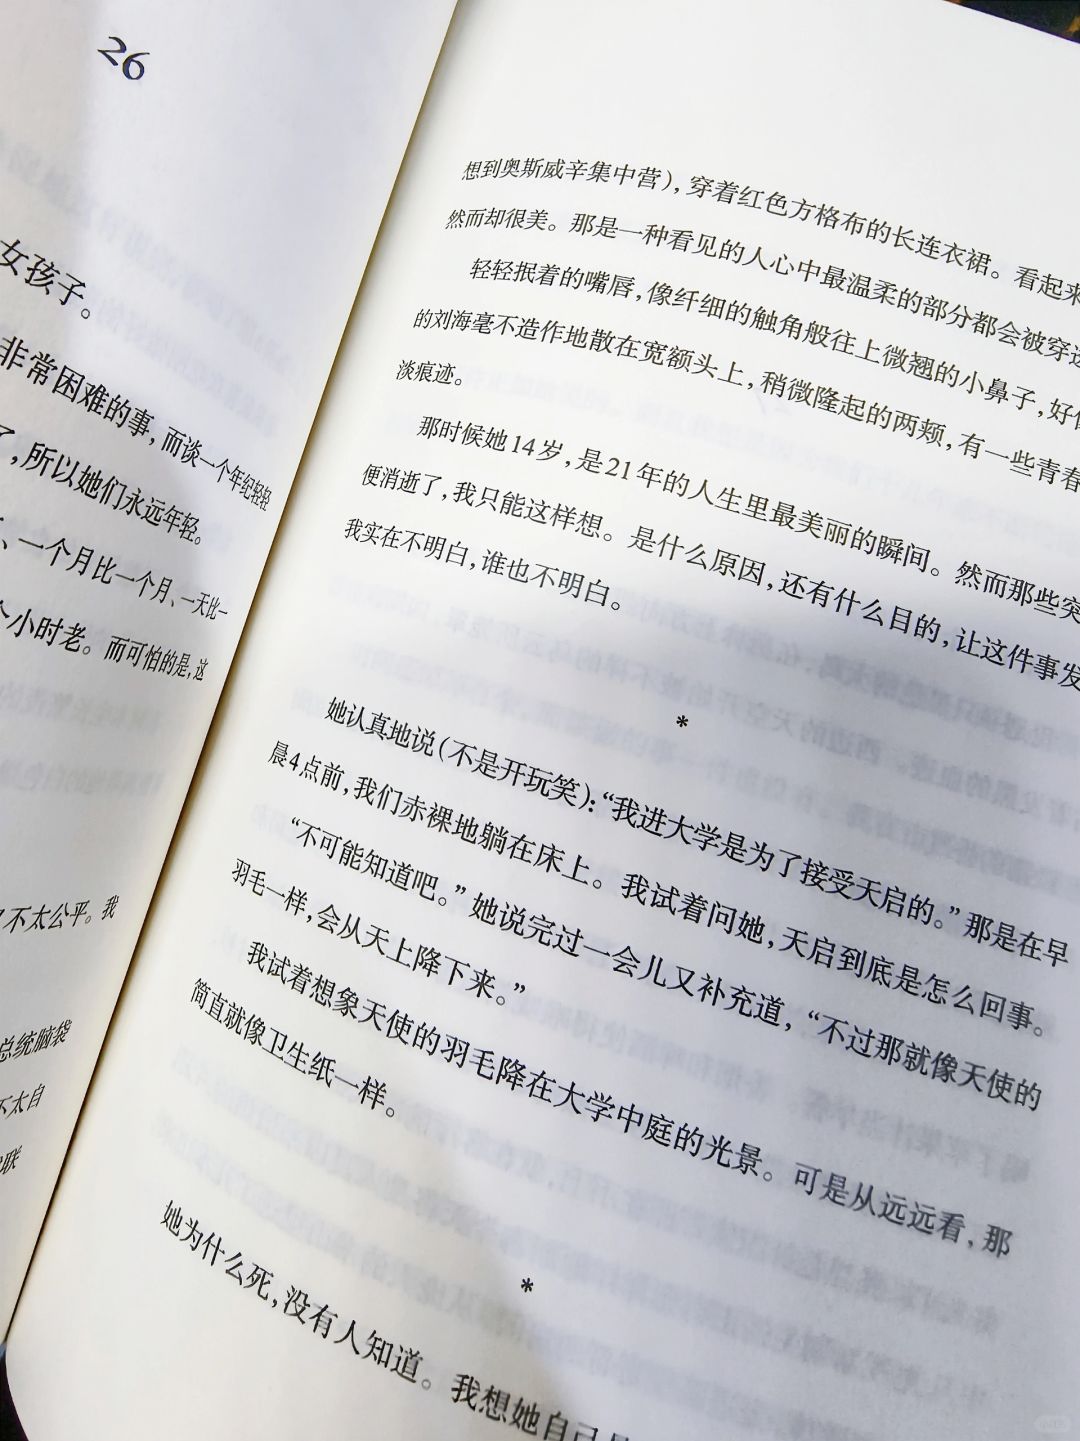 26
女孩子。
非常困难的事，而谈一个年纪轻轻
了，所以她们永远年轻。
、一个月比一个月、一天比一
个小时老。而可怕的是，这
不太公平。我
总统脑袋
不太自
联
想到奥斯威辛集中营），穿着红色方格布的长连衣裙。看起来
然而却很美。那是一种看见的人心中最温柔的部分都会被穿透
轻轻抿着的嘴唇，像纤细的触角般往上微翘的小鼻子，好像
的刘海毫不造作地散在宽额头上，稍微隆起的两颊，有一些青春
淡痕迹。
那时候她14岁，是21年的人生里最美丽的瞬间。然而那些突
便消逝了，我只能这样想。是什么原因，还有什么目的，让这件事发
我实在不明白，谁也不明白。
*
她认真地说（不是开玩笑）：“我进大学是为了接受天启的。”那是在早
晨4点前，我们赤裸地躺在床上。我试着问她，天启到底是怎么回事。
“不可能知道吧。”她说完过一会儿又补充道，“不过那就像天使的
羽毛一样，会从天上降下来。”
我试着想象天使的羽毛降在大学中庭的光景。可是从远远看，那
简直就像卫生纸一样。
*
她为什么死，没有人知道。我想她自己